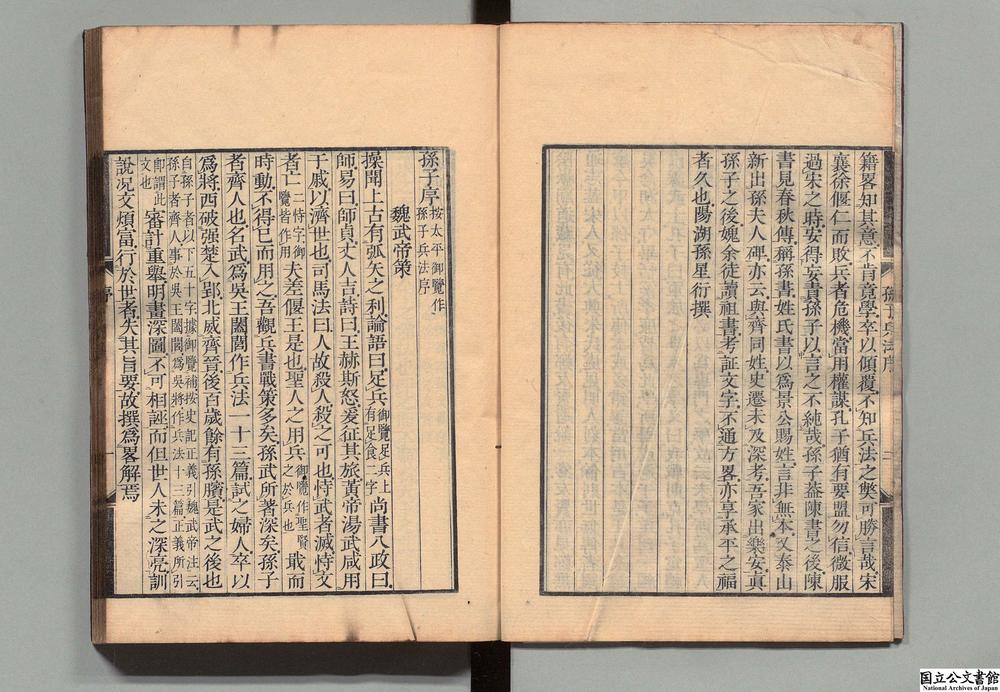 孫子兵法序
二
籍畧知其意不肯竟學卒以傾覆不知兵法之弊可勝言哉宋
襄徐偃仁而敗兵者危機當用權謀孔子猶有要盟勿信微服
過宋之時安得妄責孫子以言之不純哉孫子葢陳書之後陳
書見春秋傳稱孫書姓氏書以爲景公賜姓言非無本又泰山
新出孫夫人碑亦云與齊同姓史遷未及深考吾家出樂安真
孫子之後媿余徒讀祖書考証文字不通方畧亦享承平之福
者久也陽湖孫星衍撰
孫子序按太平御覽作孫子兵法序
魏武帝策
操聞上古有弧矢之利論語曰足兵御覽足兵上有足食二字尚書八政曰
師易曰師貞丈人吉詩曰王赫斯怒爰征其旅黃帝湯武咸用
干戚以濟世也司馬法曰人故殺人殺之可也恃武者滅恃文
者亡二恃字御覽皆作用夫差偃王是也聖人之用兵御覽作聖賢之於兵也戢而
時動不得已而用之吾觀兵書戰策多矣孫武所著深矣孫子
者齊人也名武爲吳王闔閭作兵法一十三篇試之婦人卒以
爲將西破强楚入郢北威齊晉後百歲餘有孫臏是武之後也
自孫子者以下五十字據御覽補按史記正義引魏武帝注云
孫子者齊人事於吳王闔閭爲吳將作兵法十三篇正義所引
即謂此文也審計重舉明畫深圖不可相誣而但世人未之深亮訓
說况文煩富行於世者失其旨要故撰爲畧解焉
序
一
国立公文書館
National Archives of Japan